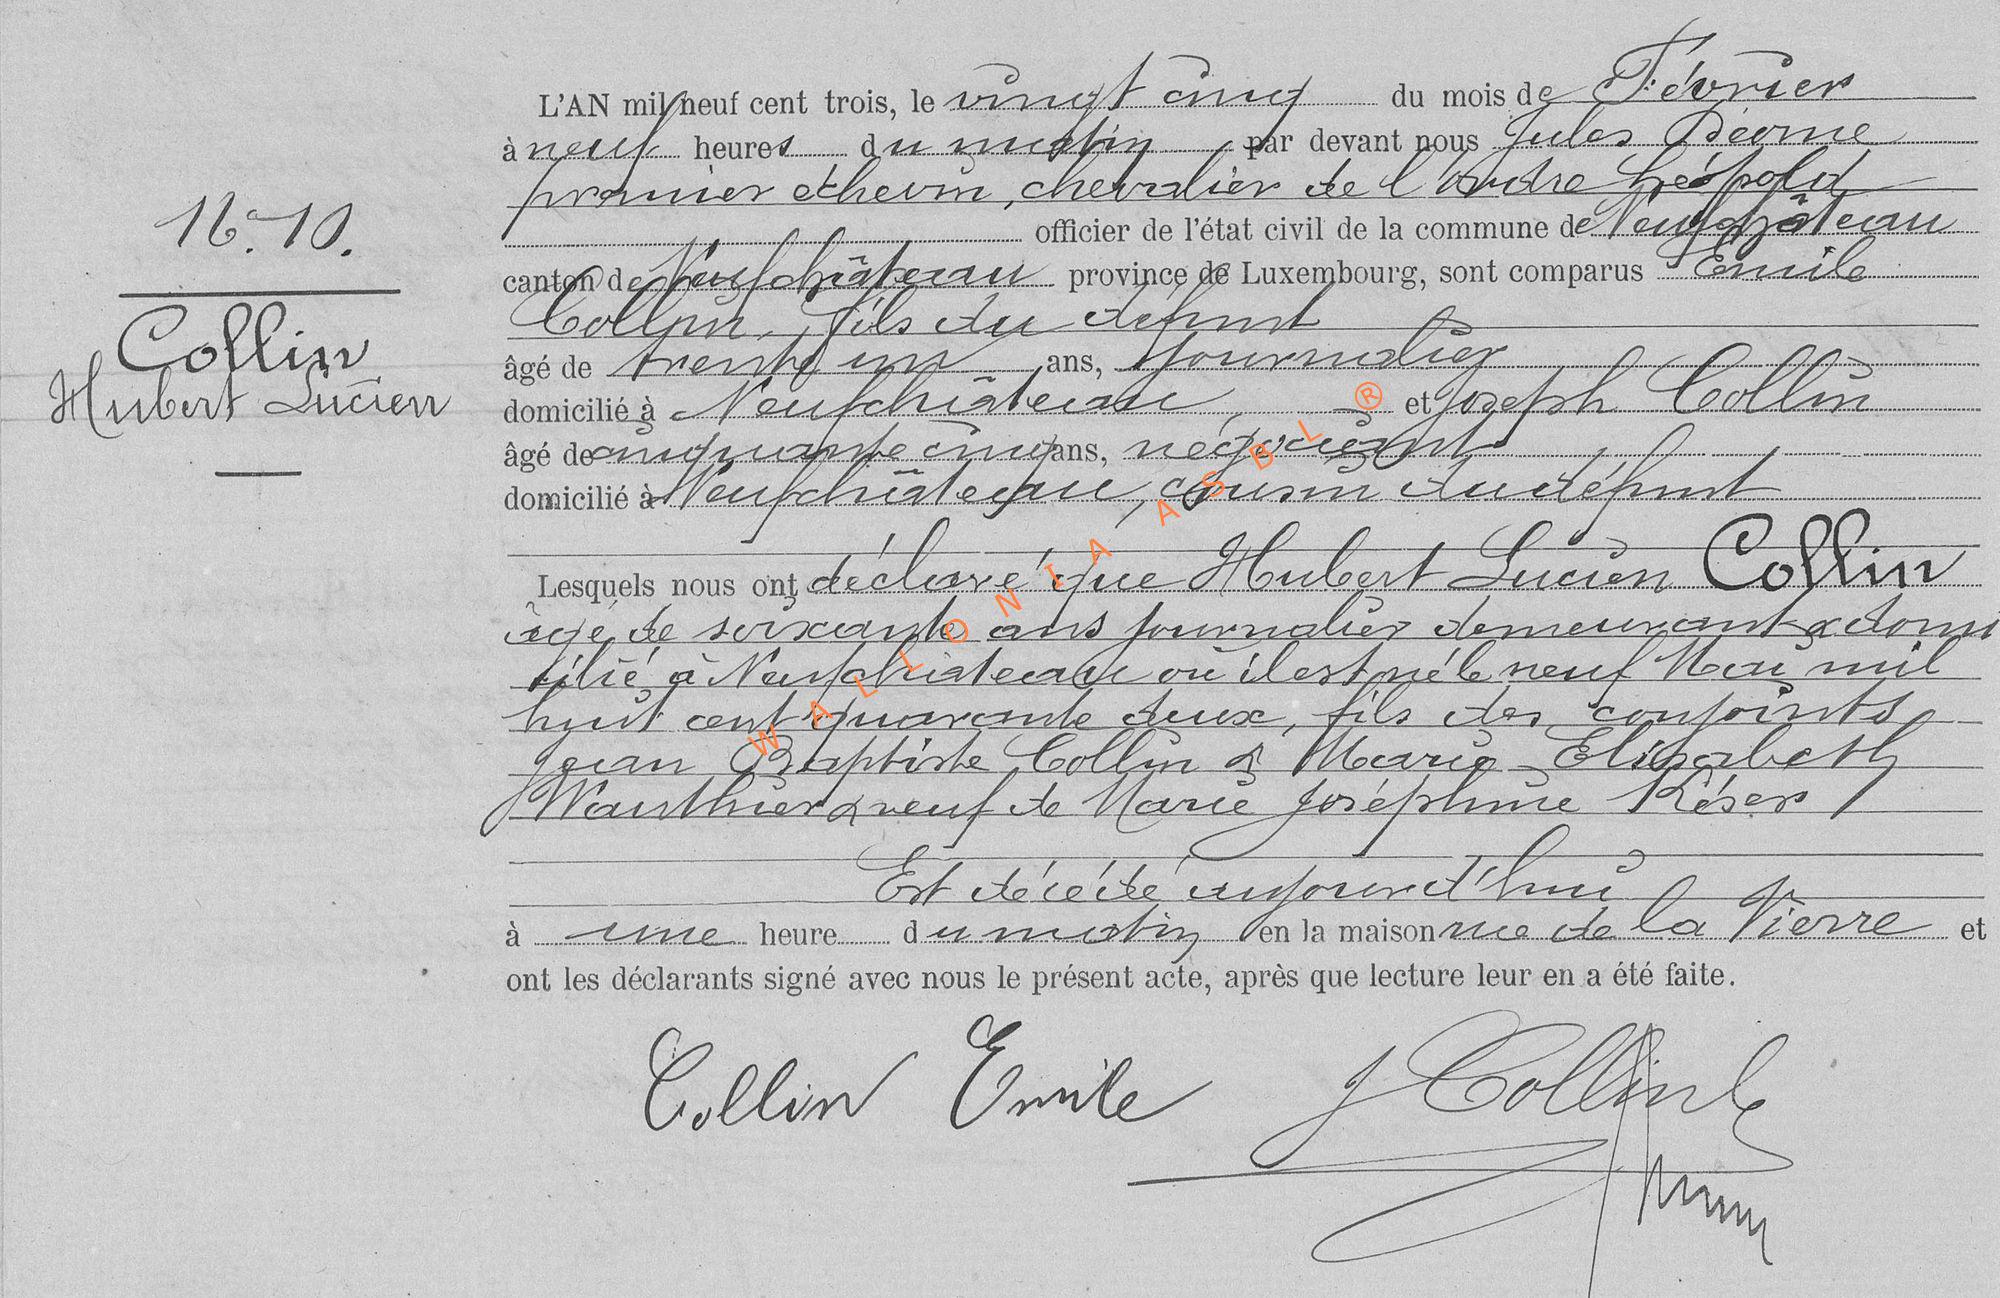 N.° 10.
Collin
Hubert Lucien
L'AN mil neuf cent trois, le vingt cinq du mois de Février
à neuf heures du matin par devant nous Jules
premier échevin, chevalier de l'ordre Léopold
officier de l'état civil de la commune de Neufchâteau
canton de Neufchâteau province de Luxembourg, sont comparus Emile
Collin, fils du défunt
âgé de trente un ans, journalier
domicilié à Neufchâteau, et Joseph Collin
âgé de cinquante cinq ans, négociant
domicilié à Neufchâteau, cousin du défunt
Lesquels nous ont déclaré que Hubert Lucien Collin
âgé de soixante ans journalier demeurant & domi
cilié à Neufchâteau où il est né le neuf Mai mil
huit cent quarante deux, fils des conjoints
Jean Baptiste Collin & Marie Elisabeth
Wauthier & veuf de Marie Joséphine Réser
Est décédé aujourd'hui
à une heure du matin en la maison rue de la Vierre et
ont les déclarants signé avec nous le présent acte, après que lecture leur en a été faite.
Collin Emile J Collin
WALLONIA ASBL ®